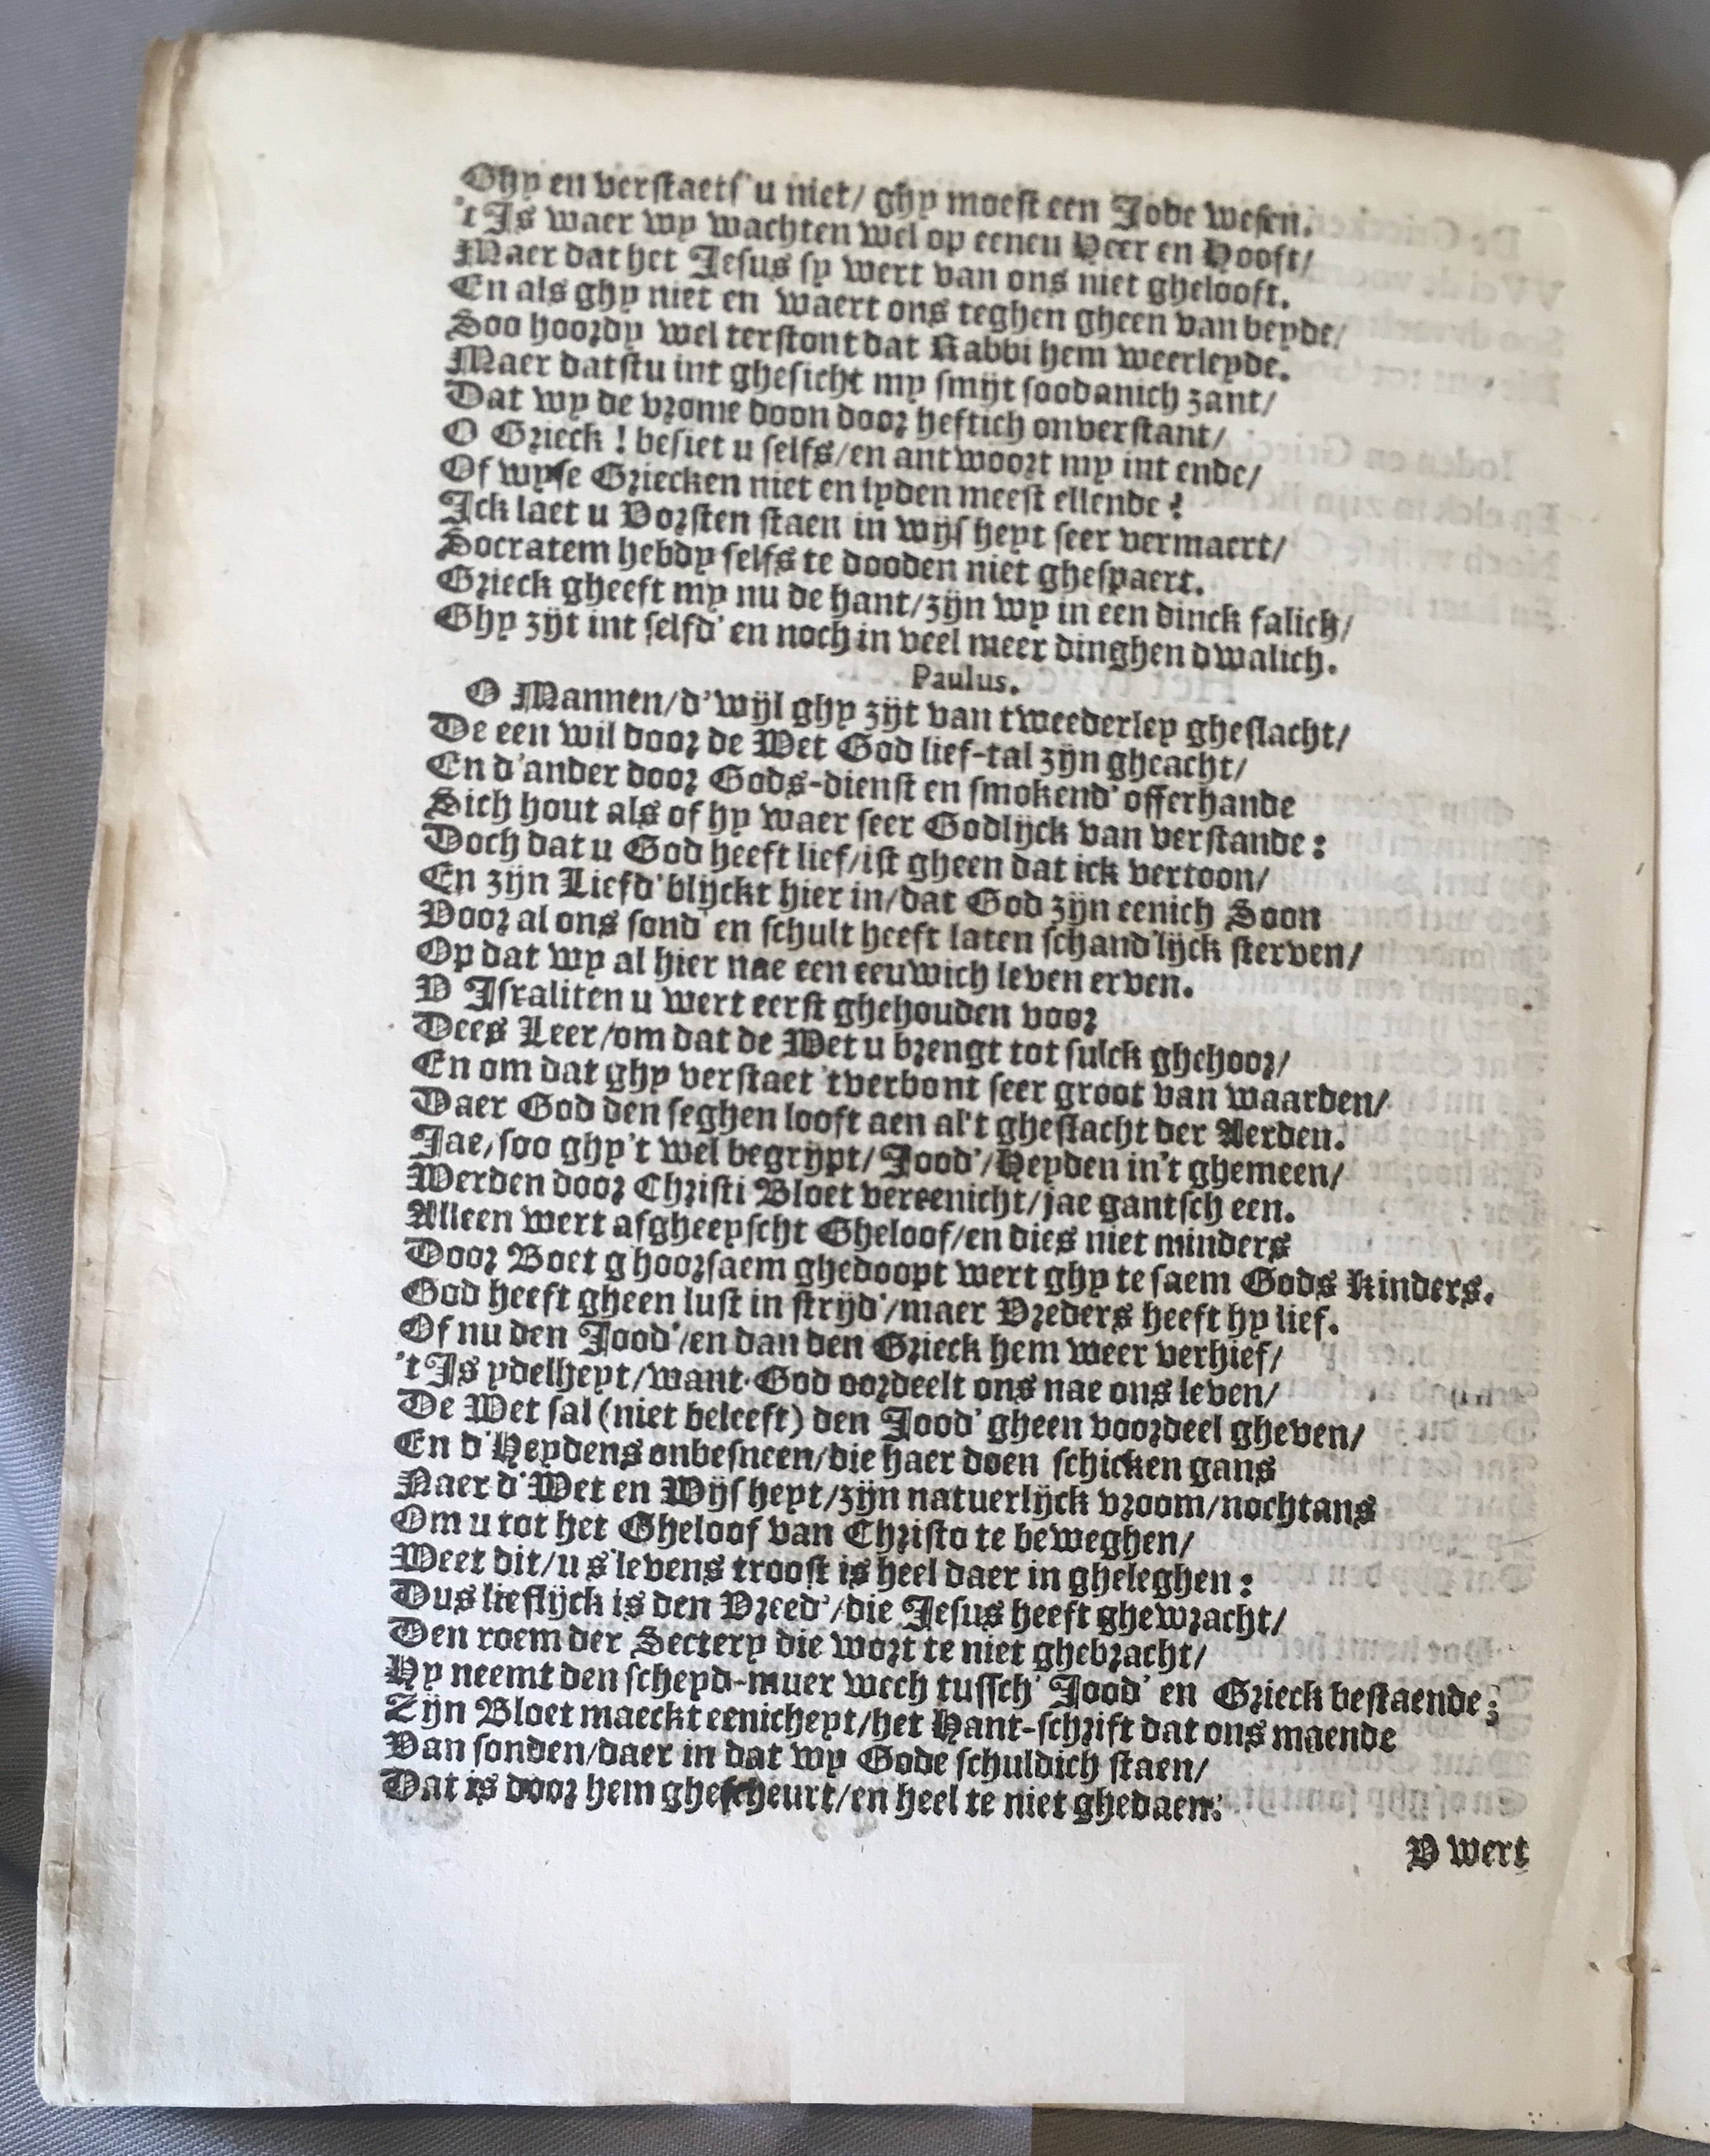 Ghy en verstaets' u niet/ ghy moest een Jode wesen.
't Is waer wy wachten wel op eenen Heer en Hooft/
Maer dat het Jesus sy wert van ons niet ghelooft.
En als ghy niet en waert ons teghen gheen van beyde/
Soo hoordy wel terstont dat Rabbi hem weerleyde.
Maer datstu int ghesicht my smijt soodanich zant/
Dat wy de vrome doon door heftich onverstant/
O Grieck ! besiet u selfs/en antwoort my int ende/
Of wyse Griecken niet en lyden meest ellende?
Ick laet u Vorsten staen in wijsheyt seer vermaert/
Socratem hebdy selfs te dooden niet ghespaert.
Grieck gheeft my nu de hant/zijn wy in een dinck falich/
Ghy zijt int selfd' en noch in veel meer dinghen dwalich.
Paulus.
O Mannen/d'wijl ghy zijt van tweederley gheslacht/
De een wil door de Wet God lief-tal zijn gheacht/
En d'ander door Gods-dienst en smokend' offerhande
Sich hout als of hy waer seer Godlijck van verstande:
Doch dat u God heeft lief/ist gheen dat ick vertoon/
En zijn Liefd' blijckt hier in/dat God zijn eenich Soon
Voor al ons sond' en schult heeft laten schand'lijck sterven/
Op dat wy al hier nae een eeuwich leven erven.
V Israliten u wert eerst ghehouden voor
Dees Leer/om dat de Wet u brengt tot sulck ghehoor/
En om dat ghy verstaet 'tverbont seer groot van waarden/
Daer God den seghen looft aen al't gheslacht der Aerden.
Jae/soo ghy't wel begrijpt/Jood'/Heyden in't ghemeen/
Werden door Christi Bloet vereenicht/jae gantsch een.
Alleen wert afgheeyscht Gheloof/en dies niet minders
Door Boet g'hoorsaem ghedoopt wert ghy te saem Gods Kinders.
God heeft gheen lust in strijd'/maer Vreders heeft hy lief.
Of nu den Jood'/en dan den Grieck hem weer verhief/
't Is ydelheyt/want God oordeelt ons nae ons leven/
De Wet sal (niet beleeft) den Jood' gheen voordeel gheven/
En d'Heydens onbesneen/die haer doen schicken gans
Naer d'Wet en Wijsheyt/zijn natuerlijck vroom/nochtans
Om u tot het Gheloof van Christo te beweghen/
Weet dit/u s'levens troost is heel daer in gheleghen:
Dus lieflijck is den Vreed'/die Jesus heeft ghewracht/
Den roem der Sectery die wort te niet ghebracht/
Hy neemt den scheyd-muer wech tussch' Jood' en Grieck bestaende;
Zijn Bloet maeckt eenicheyt/het Hant-schrift dat ons maende
Van sonden/daer in dat wy Gode schuldich staen/
Dat is door hem ghescheurt/en heel te niet ghedaen:
V wert